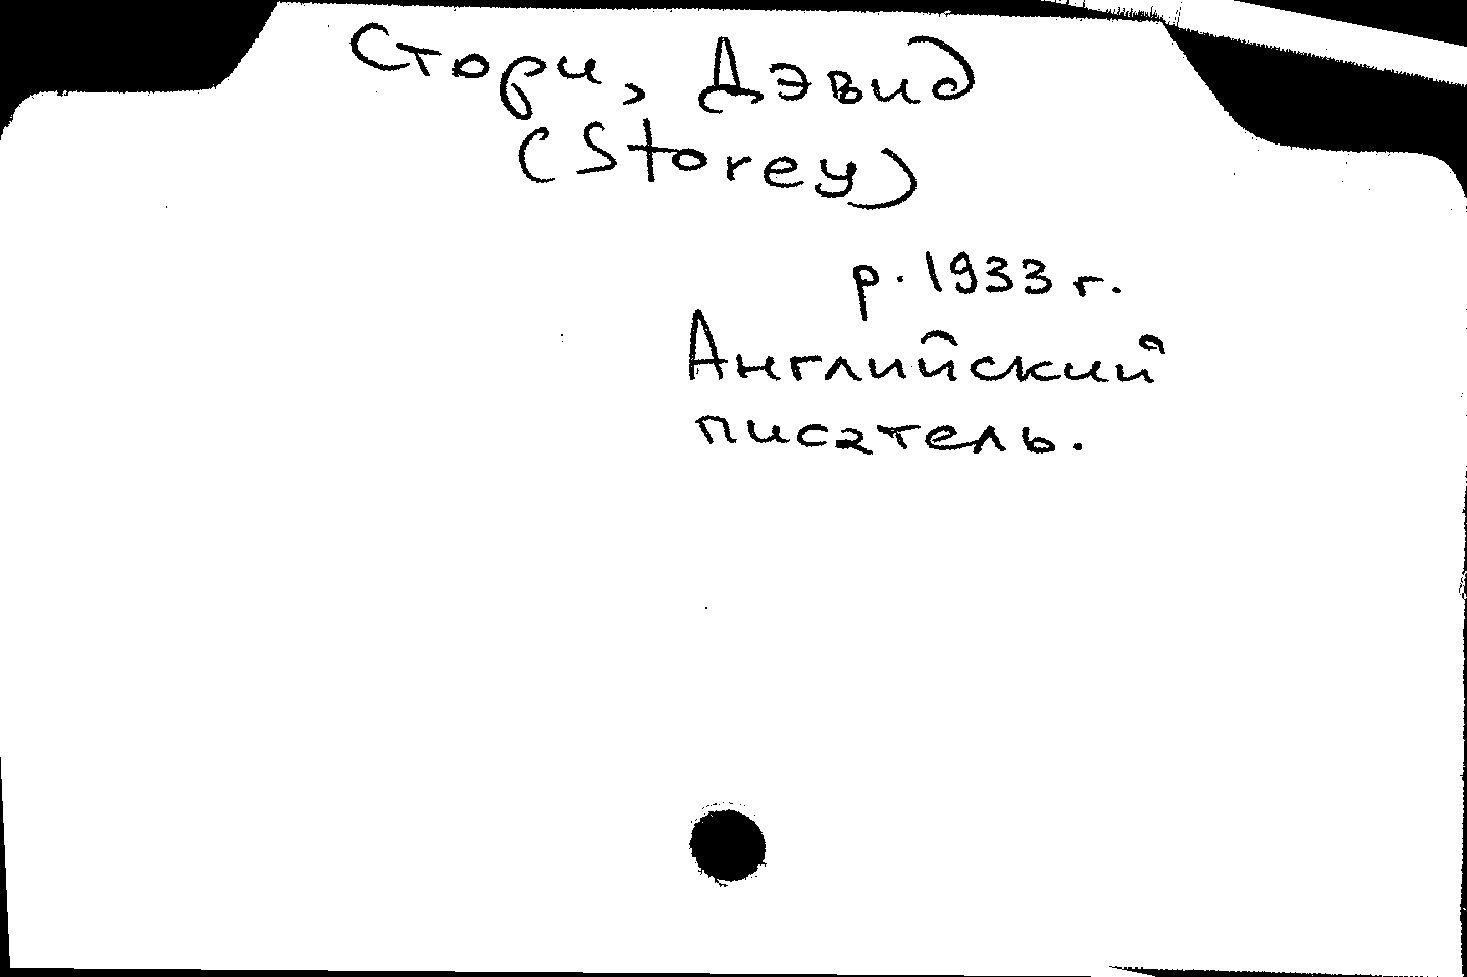 Стори, Дэвид
(Storey)
р. 1933 г.
Английский
писатель.